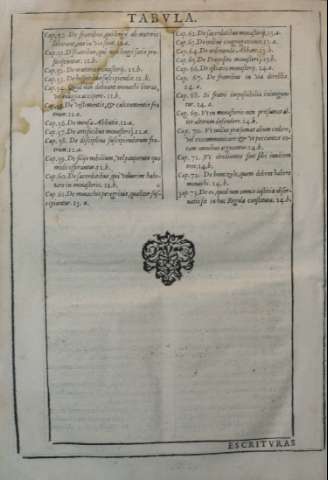 TABVLA.
Cap. 50. De fratribus, qui longe ab oratorio
laborant, aut in via sunt. 11.a.
Cap. 51. De fratribus, qui non longe satis pro-
ficiscuntur. 11.b.
Cap. 52. De oratorio monasterij. 11.b.
Cap. 53. De hospitibus suscipiendis. 11.b.
Cap. 54. Quod non debeant monachi literas,
vel eulogias accipere. 11.b.
Cap. 55. De vestimentis, & calciamentis fra-
trum. 12.a.
Cap. 56. De mensa Abbatis. 12.a.
Cap. 57. De artificibus monasterij. 12.a.
Cap. 58. De disciplina suscipiendorum fra-
trum. 12.a.
Cap. 59. De filijs nobilium, vel pauperum quo
modo offerantur. 12.b.
Cap. 60. De sacerdotibus, qui voluerint habi-
tare in monasterio. 13.b.
Cap. 61. De monachis peregrinis, qualiter su-
scipiantur. 13.a.
Cap. 62. De sacerdotibus monasterij. 13.a.
Cap. 63. De ordine congregationis. 13.a.
Cap. 64. De ordinando Abbate. 13.b.
Cap. 65. De Præposito monasterij. 13.b.
Cap. 66. De ostiario monasterij. 14.a.
Cap. 67. De fratribus in via directis.
14.a.
Cap. 68. Si fratri impossibilia iniungun-
tur. 14.a.
Cap. 69. Vt in monasterio non præsumat al-
ter alterum defendere. 14.b.
Cap. 70. Vt nullus præsumat alium cedere,
vel excommunicare
14.b.
Cap. 71. Vt obedientes sint sibi inuicem
14.b.
Cap. 72. De bono zelo, quem debent habere
monachi. 14.b.
Cap. 73. De eo, quod non omnis iustitiæ obser-
uatio sit in hac Regula constituta. 14.b.
ESCRITVRAS